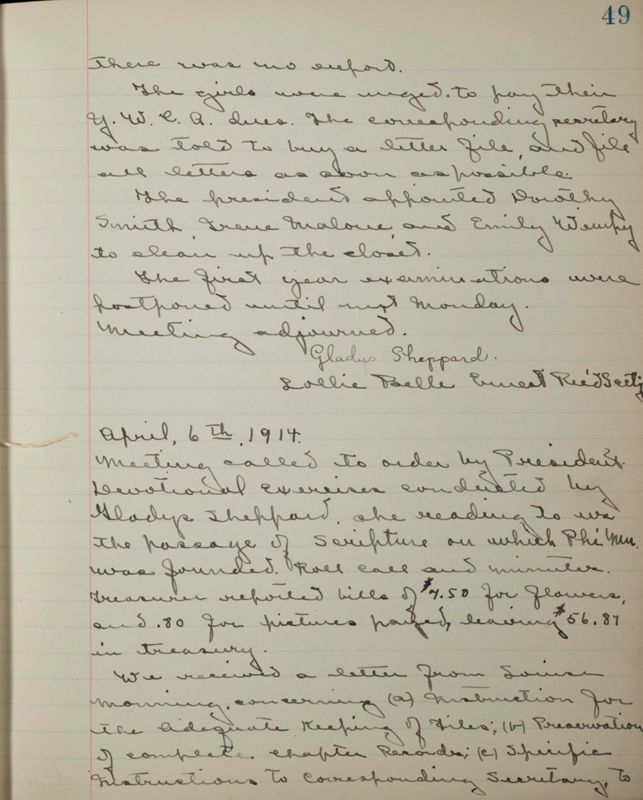 49
there was no report.
The girls were urged to pay their
Y. W. C. A. dues. The corresponding secretary
was told to buy a letter file, and file
all letters as soon as possible.
The president appointed Dorothy
Smith, Irene Malone, and Emily Wemby
to clean up the closet.
The first year examinations were
postponed until next Monday.
Meeting adjourned.
Gladys Sheppard.
Lollie Belle Ernest Rec'd Sect'y
April, 6th, 1914.
Meeting called to order by President.
Devotional exercises conducted by
Gladys Sheppard, she reading to us
the passage of Scripture on which Phi Mu
was founded. Roll call and minutes.
Treasurer reported bills of $7.50 for flowers,
and .80 for pictures payed, leaving $56.87
in treasury.
We received a letter from Louise
Monning, concerning (a) Instruction for
the Adequate Keeping of Files; (b) Preservation
of complete chapter Records; (c) Specific
Instructions to Corresponding Secretary, to